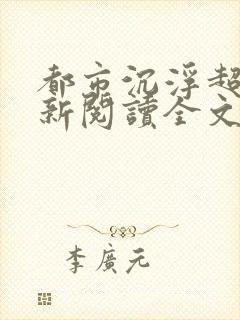 都市沉浮超
新閱讀全文
李廣元